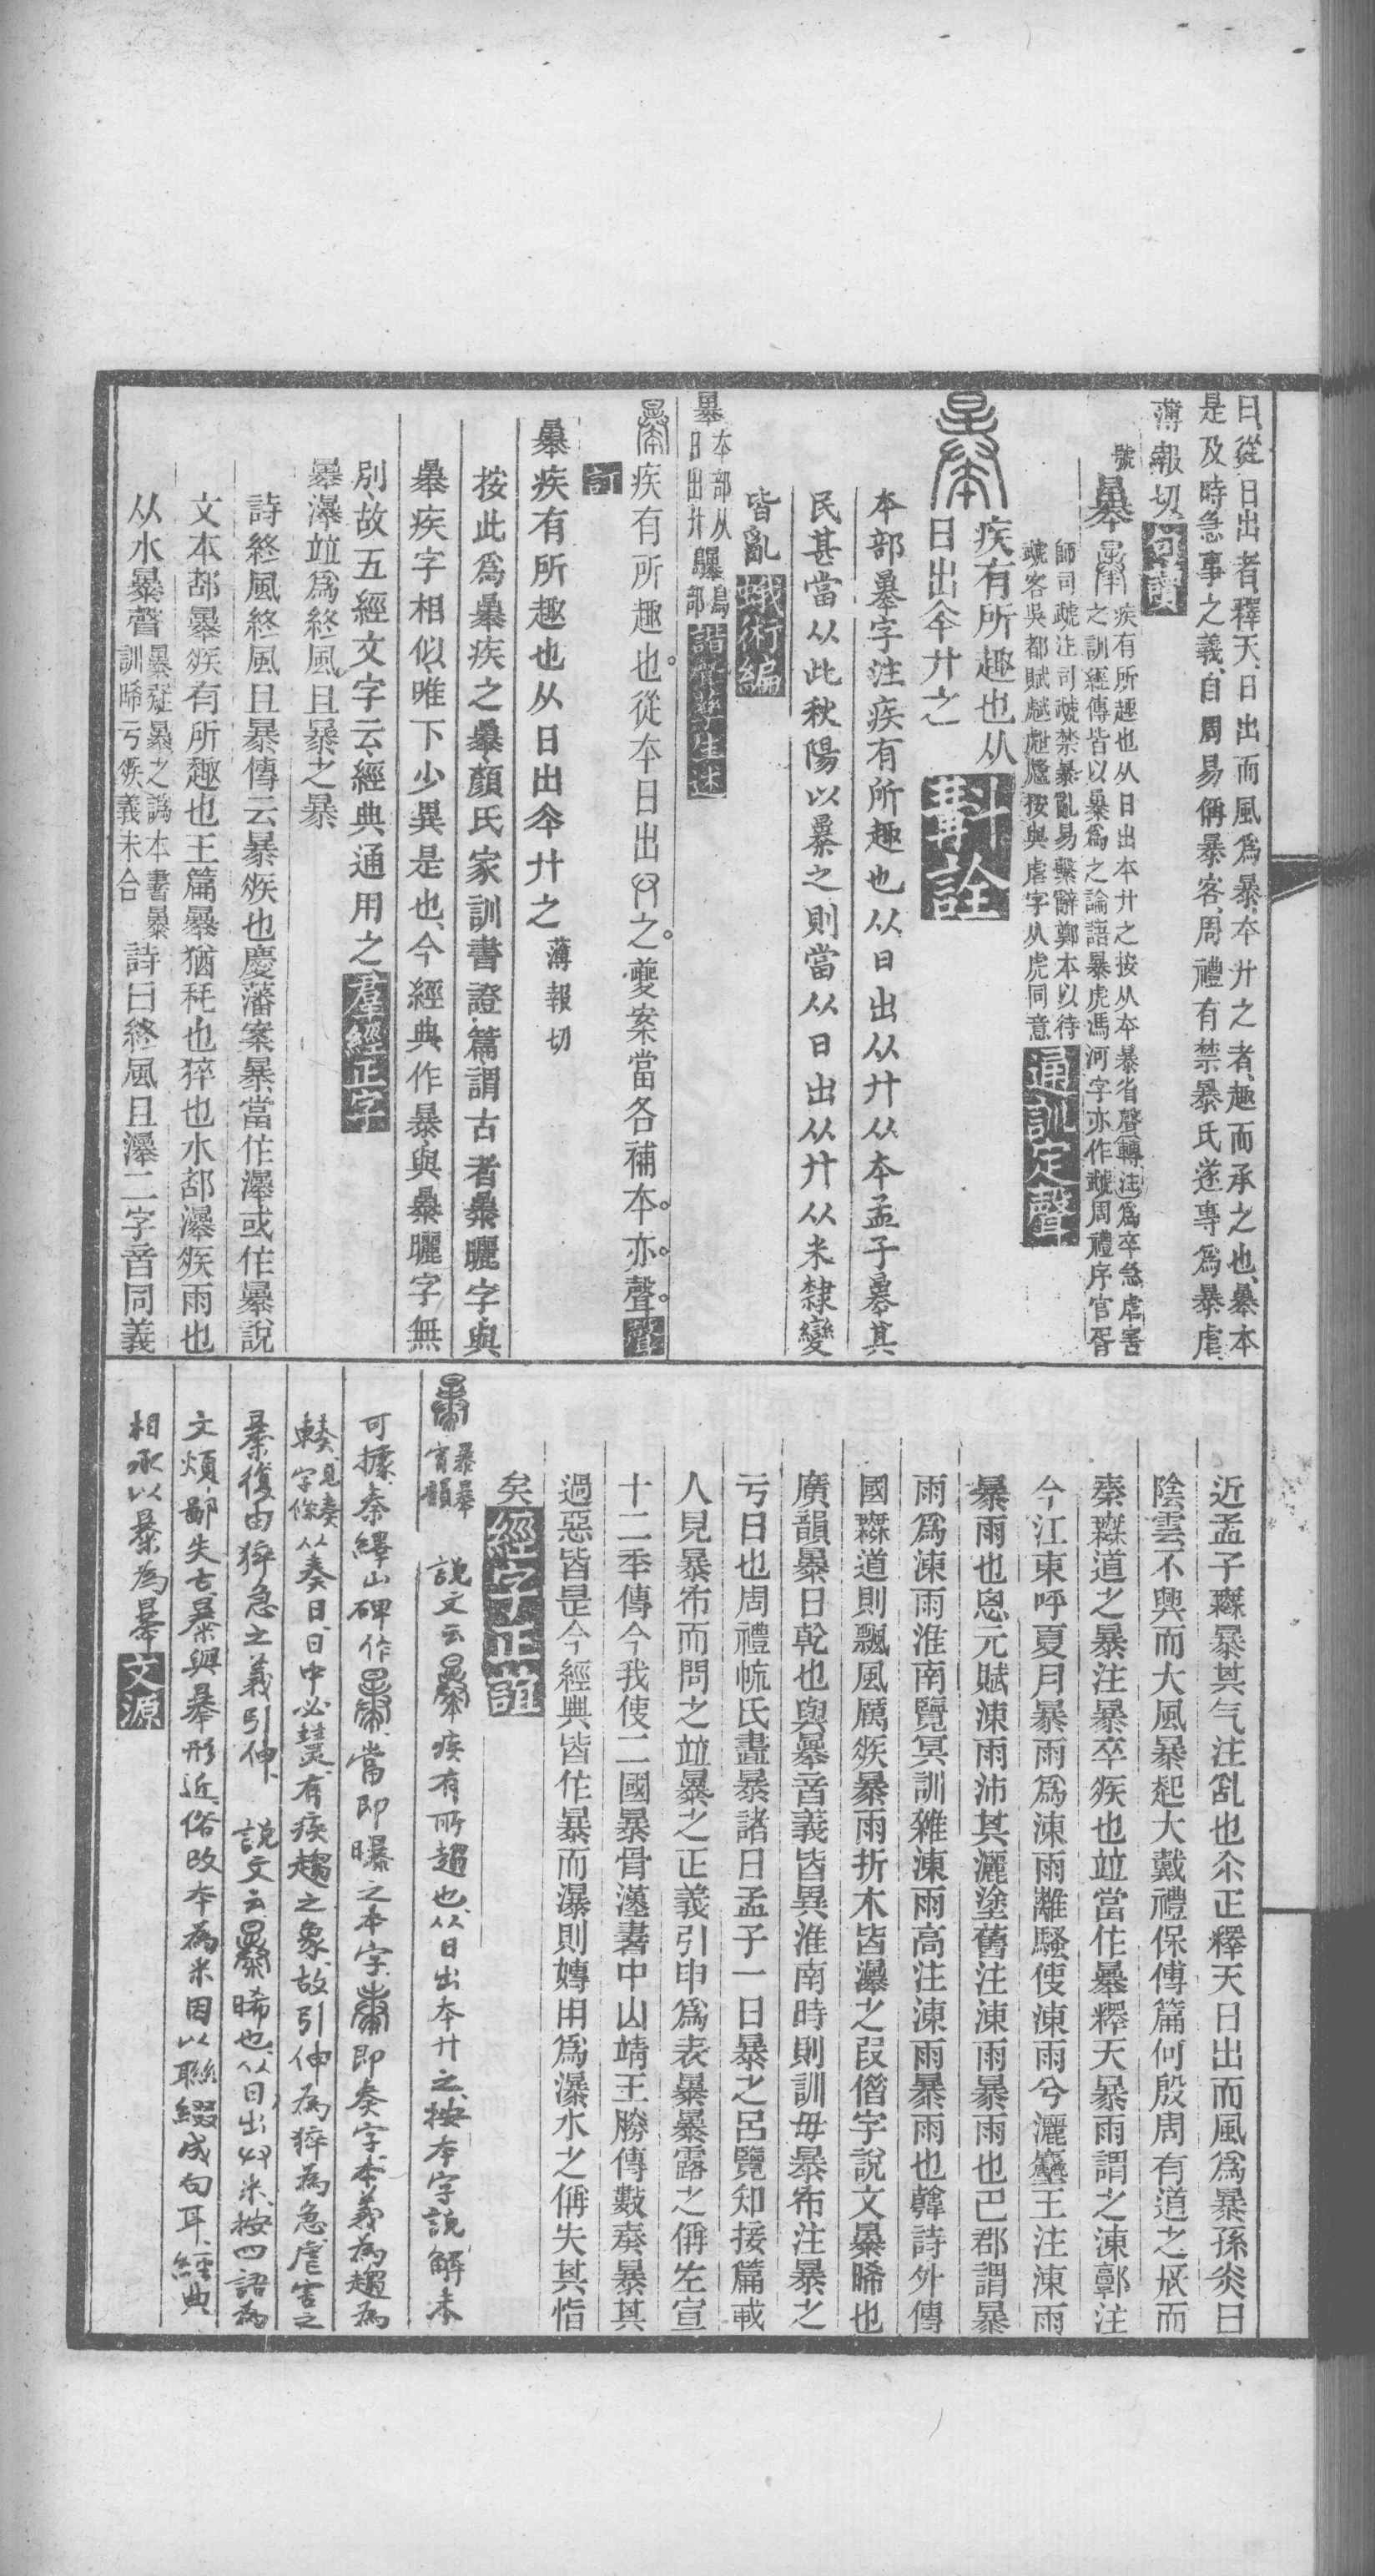 曰從日出者釋天日出而風爲暴夲廾之者趣而承之也暴本
是及時急事之義自周易偁暴客周禮有禁暴氏遂專爲暴虐
薄報切句讀
號
暴 疾有所趣也从日出夲廾之按从夲暴省聲轉注爲卒急虐害
之訓經傳皆以暴爲之論語暴虎馮河字亦作虣周禮序官胥
師司虣注司虣禁暴亂易繫辭鄭本以待
虣客吳都賦虣按與虐字从虎同意通訓定聲
疾有所趣也从
日出夲廾之斠詮
本部暴字注疾有所趣也从日出从廾从夲孟子暴其
民甚當从此秋陽以暴之則當从日出从廾从米隸變
皆亂蛾術編
暴 本部从日出廾 鳥部 諧聲孳生述
疾有所趣也從夲日出之夔案當各補夲亦聲聲
訂
暴疾有所趣也从日出夲廾之薄報切
按此爲暴疾之暴顏氏家訓書證篇謂古者暴曬字與
暴疾字相似唯下少異是也今經典作暴與暴曬字無
別故五經文字云經典通用之羣經正字
暴瀑竝爲終風且暴之暴
詩終風終風且暴傳云暴疾也慶藩案暴當作瀑或作暴說
文本部暴疾有所趣也玉篇暴猶秏也猝也水部瀑疾雨也
从水暴聲暴疑暴之譌本書暴訓晞亏疾義未合詩曰終風且瀑二字音同義
近孟子暴其气注亂也尒正釋天日出而風爲暴孫炎曰
陰雲不興而大風暴起大戴禮保傅篇何殷周有道之長而
秦無道之暴注暴卒疾也竝當作暴釋天暴雨謂之涷郭注
今江東呼夏月暴雨爲涷雨離騷使涷雨兮灑塵王注涷雨
暴雨也思元賦涷雨沛其灑塗舊注涷雨暴雨也巴郡謂暴
雨爲涷雨淮南覽冥訓雜涷雨高注涷雨暴雨也韓詩外傳
國無道則飄風厲疾暴雨折木皆瀑之叚借字說文暴晞也
廣韻暴日乾也與暴音義皆異淮南時則訓毋暴布注暴之
亏日也周禮㡛氏晝暴諸日孟子一日暴之呂覽知接篇載
人見暴布而問之竝暴之正義引申爲表暴暴露之偁左宣
十二年傳今我使二國暴骨漢書中山靖王勝傳數奏暴其
過惡皆是今經典皆作暴而瀑則轉用爲瀑水之偁失其恉
矣經字正誼
暴暴宵韻 說文云疾有所趨也从日出夲廾之按夲字說解未
可據秦繹山碑作當即曝之本字即奏字本義爲趨爲
輳見奏字條从奏日日中必熭有疾趨之象故引伸爲猝爲急虐害之
暴復由猝急之義引伸說文云晞也从日出廾米按四語爲
文煩鄙失古暴與暴形近俗改夲爲米因以聯綴成句耳經典
相承以暴爲暴文源